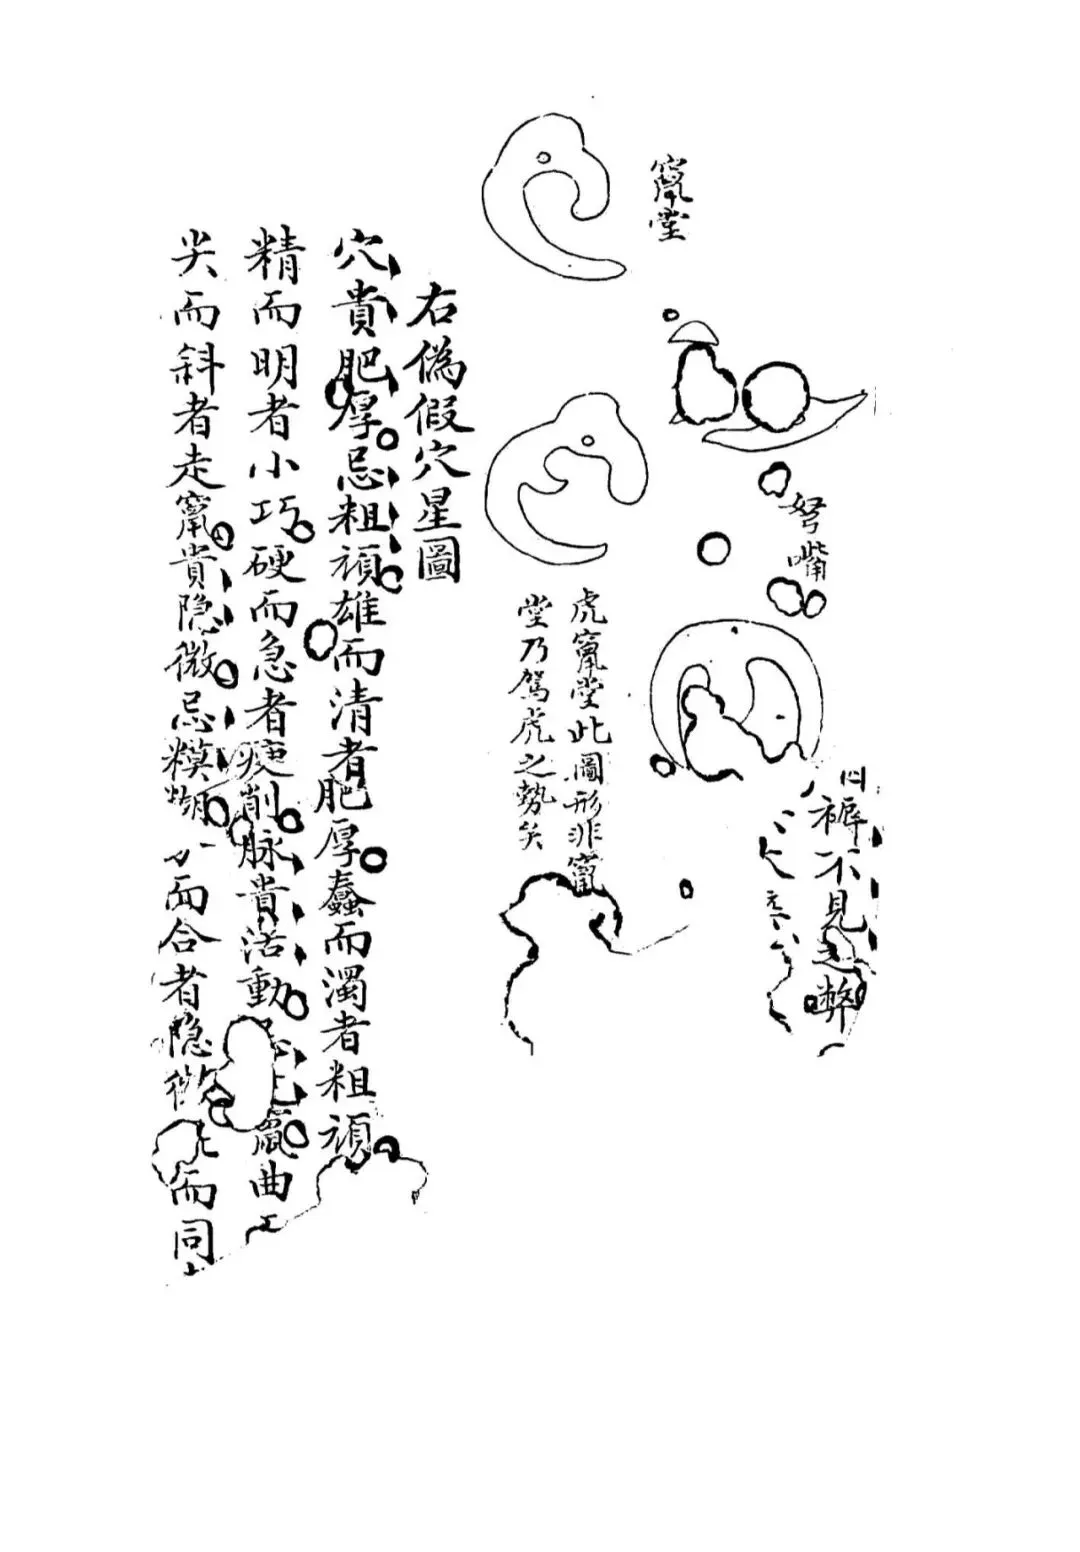 裤不見之弊
弩嘴
竄堂
虎竄堂此圖形非竄
堂乃駕虎之勢矣
右偽假穴星圖
穴貴肥厚忌粗頑雄而清者肥厚蠢而濁者粗頑
精而明者小巧硬而急者瘦削脉貴活動忌竄曲
尖而斜者走竄貴隐微忌糢糊而合者隐微而同